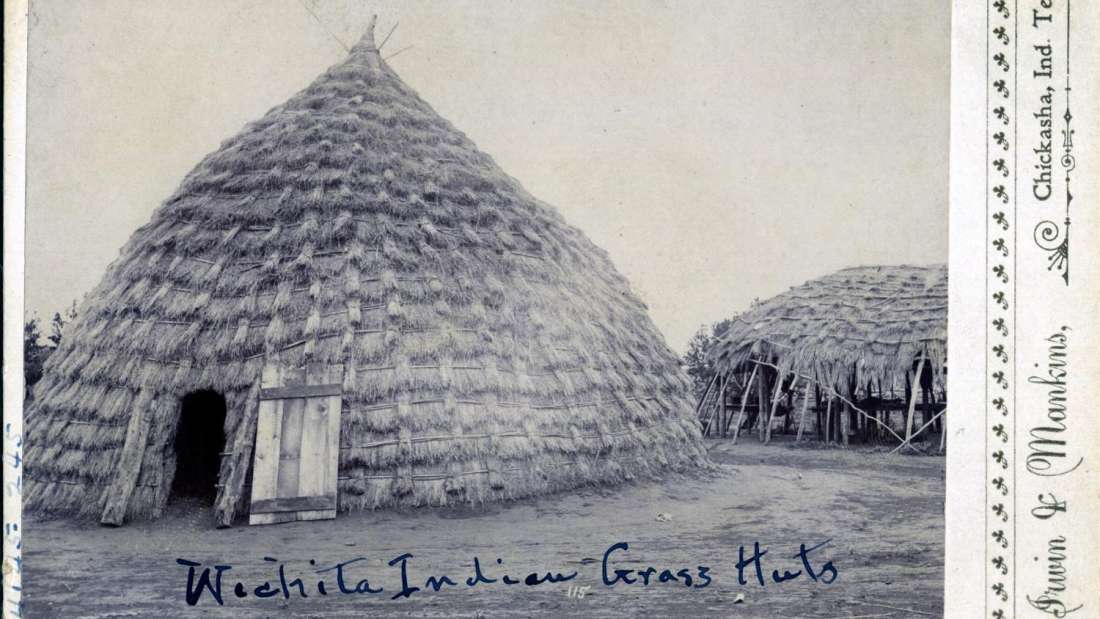 Wichita Indian Grass Huts
115
Irwin & Mankins,
Chickasha, Ind. Te